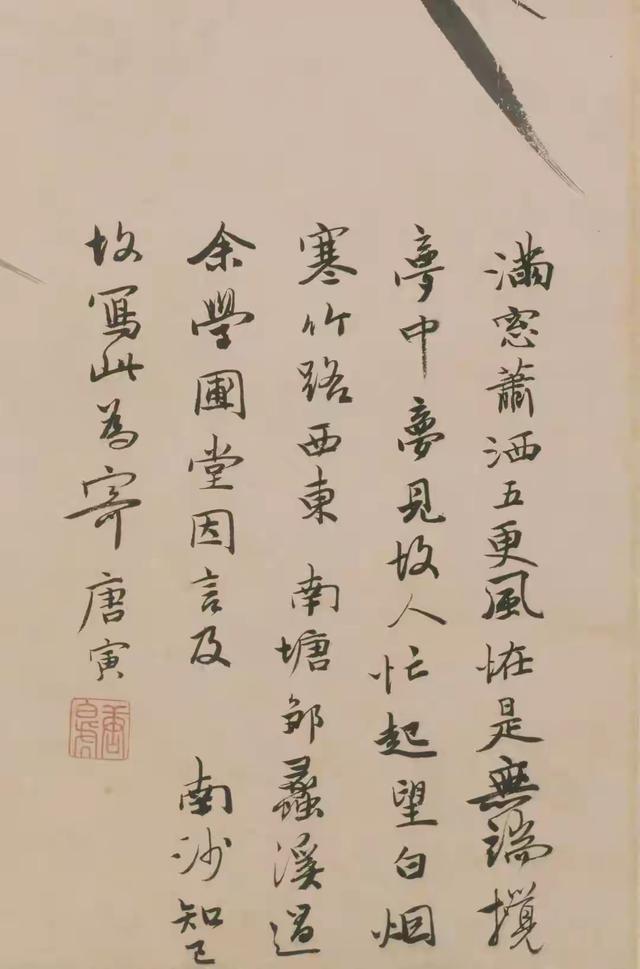 滿窓蕭洒五更風恠是無端攪
夢中夢見故人忙起望白烟
寒竹路西東南塘邹蠡溪過
余學圃堂因言及南沙知己
故寫此為寄唐寅